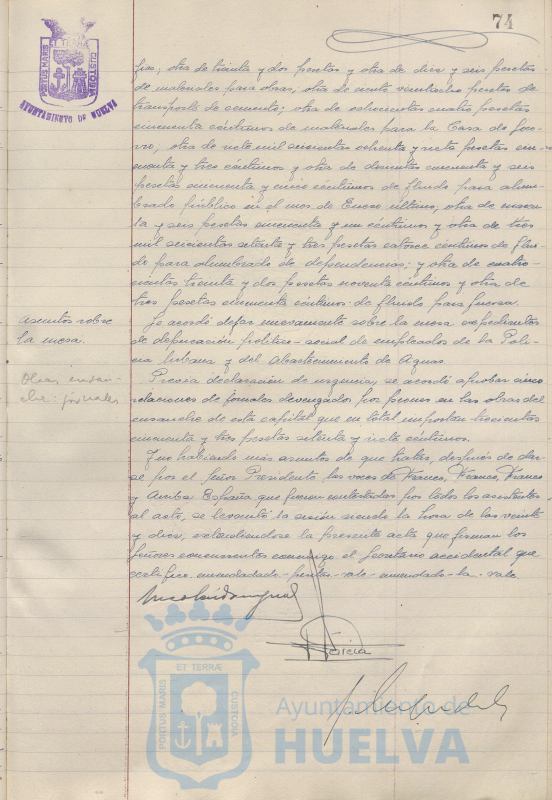 74
PORTUS MARIS ET TERRÆ CUSTODIA
AYUNTAMIENTO DE HUELVA
otra de treinta y dos pesetas y otra de diez y seis pesetas
de materiales para obras, otra de ciento veinticinco pesetas de
transporte de cemento; otra de ochocientas cuatro pesetas
cincuenta céntimos de materiales para la Casa de Soco-
rro, otra de siete mil seiscientas ochenta y siete pesetas cin-
cuenta y tres céntimos y otra de doscientas cincuenta y seis
pesetas cincuenta y cinco céntimos de fluido para alum-
brado público en el mes de Enero último, otra de
y seis pesetas cincuenta y un céntimos y otra de tres
mil seiscientas setenta y tres pesetas catorce céntimos de flui-
do para alumbrado de dependencias; y otra de cuatro-
cientas treinta y dos pesetas noventa céntimos y otra de
tres pesetas cincuenta céntimos de fluido para fuerza.
Asuntos sobre
la mesa.
Se acordó dejar nuevamente sobre la mesa expedientes
de depuración político-social de empleados de la Poli-
cía Urbana y del Abastecimiento de Aguas.
Obras ensan-
che: jornales
Previa declaración de urgencia, se acordó aprobar cinco
relaciones de jornales devengados por peones en las obras del
ensanche de esta capital que en total importan trescientas
cincuenta y tres pesetas setenta y siete céntimos.
Y no habiendo más asuntos de que tratar, después de dar-
se por el Señor Presidente las voces de Franco, Franco, Franco
y Arriba España que fueron contestadas por todos los asistentes
al acto, se levantó la sesión siendo la hora de las veinte
y diez, extendiéndose la presente acta que firman los
Señores concurrentes conmigo el Secretario accidental que
certifico. enmendado - - vale - enmendado - la - vale
García
PORTUS MARIS ET TERRÆ CUSTODIA
Ayuntamiento de
HUELVA